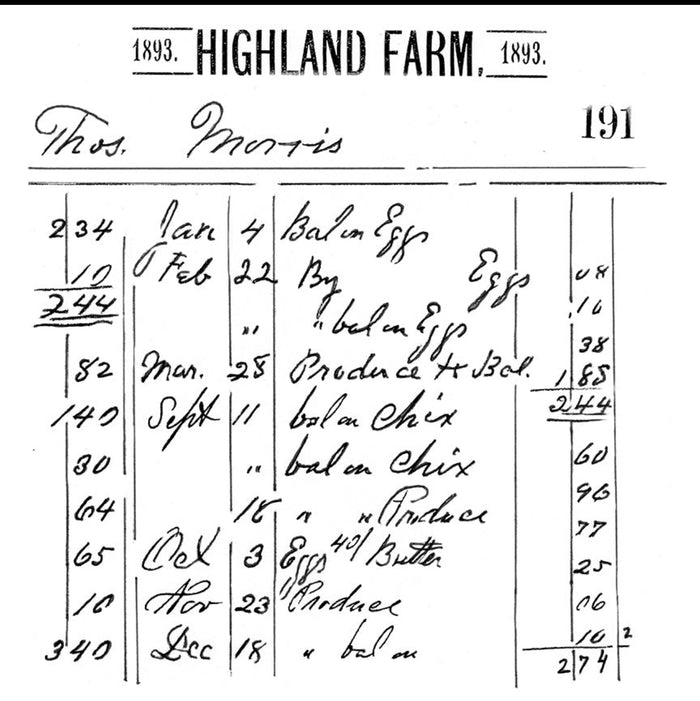 1893. HIGHLAND FARM, 1893.
Thos. Morris 191
2 34 Jan 4 Bal on Eggs
10 Feb 22 By Eggs 08
2 44 " " bal on Eggs .10
38
82 Mar. 28 Produce to Bal. 1 88
1 40 Sept 11 bal on Chix 2 44
30 " bal on Chix 60
96
64 18 " " Produce
77
65 Oct 3 Eggs 40/ Butter
25
10 Nov 23 " Produce 06
3 40 Dec 18 " bal on 10 2
2 74